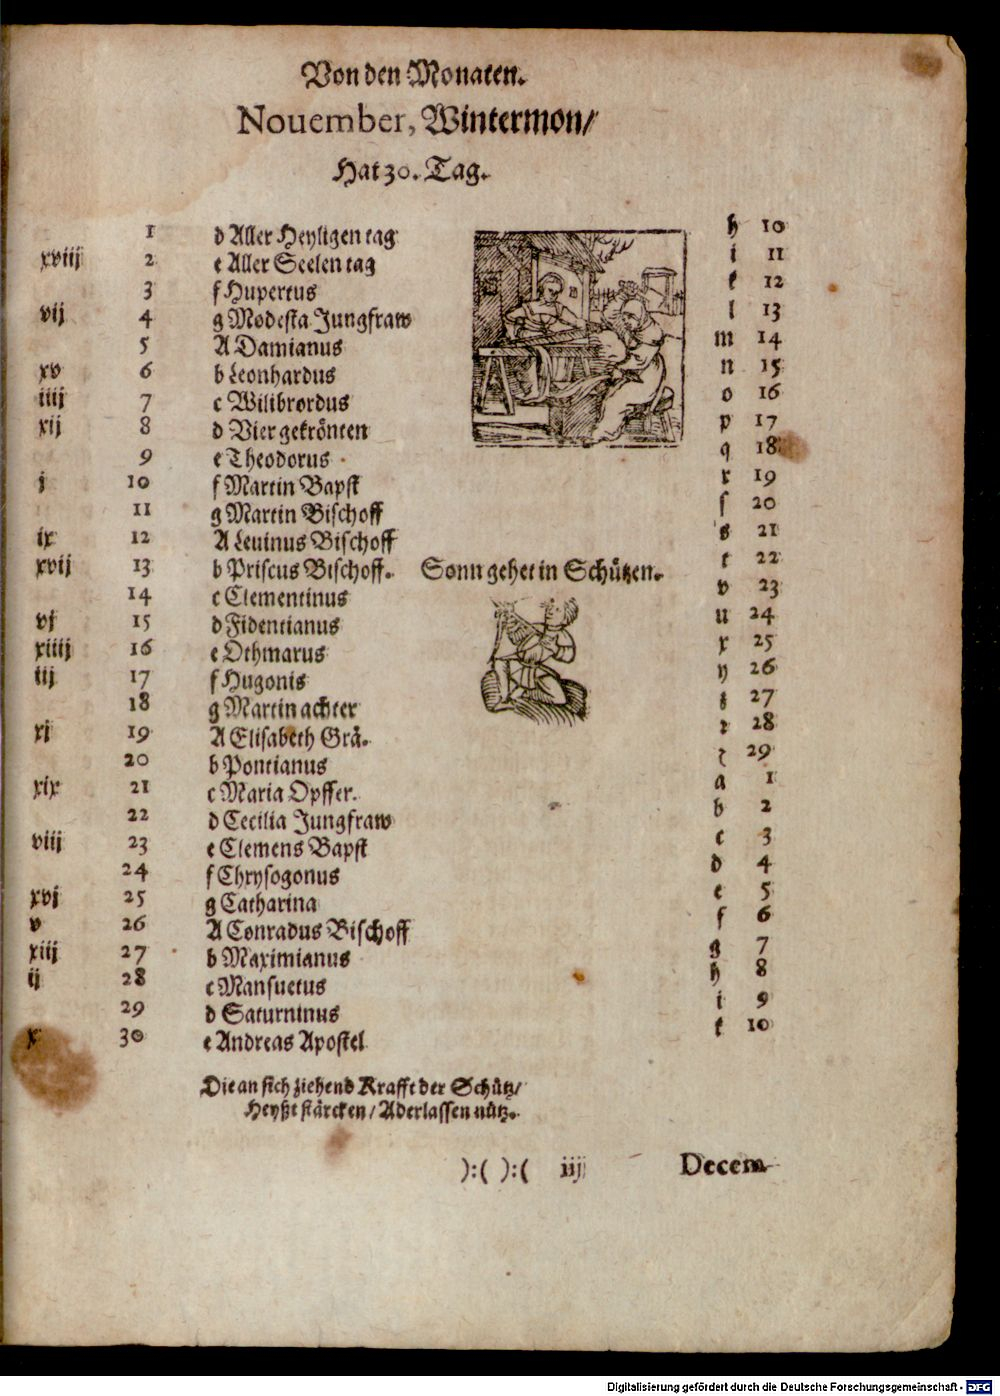 Von den Monaten.
Nouember, Wintermon/
Hat 30. Tag.
1 d Aller Heyligen tag h 10
xviij 2 e Aller Seelen tag i 11
3 f Hupertus k 12
vij 4 g Modesta Jungfraw l 13
5 A Damianus m 14
xv 6 b Leonhardus n 15
iiij 7 c Wilibrordus o 16
xij 8 d Vier gekrönten p 17
9 e Theodorus q 18
j 10 f Martin Bapst r 19
11 g Martin Bischoff ſ 20
ix 12 A Leuinus Bischoff s 21
xvij 13 b Priscus Bischoff. Sonn gehet in Schützen. t 22
14 c Clementinus v 23
vj 15 d Fidentianus u 24
xiiij 16 e Othmarus x 25
iij 17 f Hugonis y 26
18 g Martin achter z 27
xj 19 A Elisabeth Grä. 28
20 b Pontianus 29
xix 21 c Maria Opffer. a 1
22 d Cecilia Jungfraw b 2
viij 23 e Clemens Bapst c 3
24 f Chrysogonus d 4
xvj 25 g Catharina e 5
v 26 A Conradus Bischoff f 6
xiij 27 b Maximianus g 7
ij 28 c Mansuetus h 8
29 d Saturninus i 9
x 30 e Andreas Apostel k 10
Die an sich ziehend Krafft der Schütz/
Heyßt stärcken/ Aderlassen nütz.
):( ):( iij Decem-
Digitalisierung gefördert durch die Deutsche Forschungsgemeinschaft - DFG